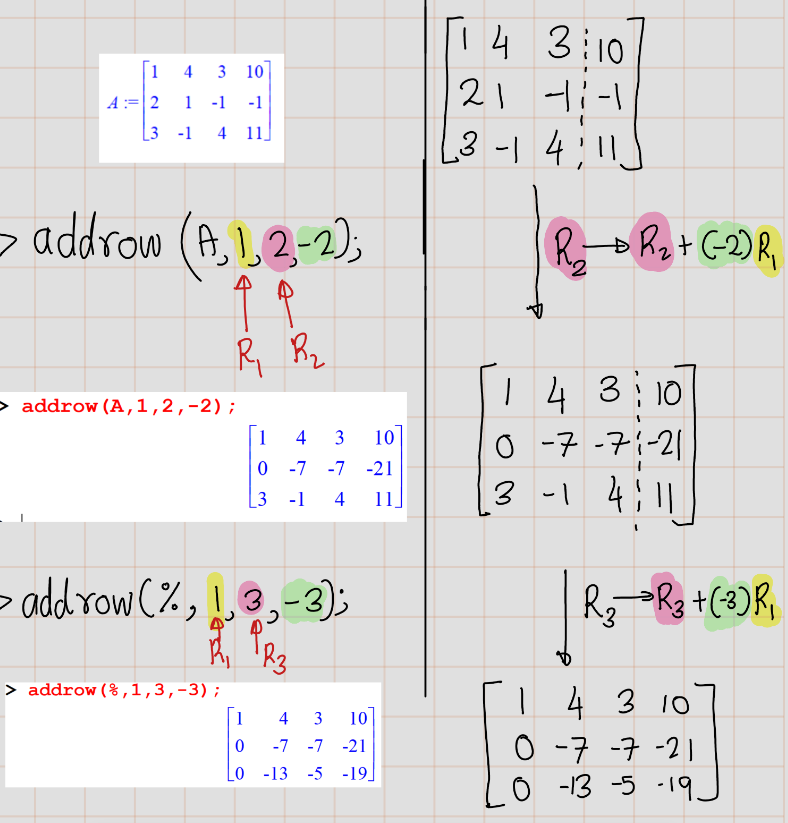 A := [1 4 3 10]
[2 1 -1 -1]
[3 -1 4 11]
> addrow (A, 1, 2, -2);
R1 R2
> addrow(A,1,2,-2);
[1 4 3 10]
[0 -7 -7 -21]
[3 -1 4 11]
> addrow(%, 1, 3, -3);
R1 R3
> addrow(%,1,3,-3);
[1 4 3 10]
[0 -7 -7 -21]
[0 -13 -5 -19]
[1 4 3 ¦ 10]
[2 1 -1 ¦ -1]
[3 -1 4 ¦ 11]
R2 → R2 + (-2) R1
[1 4 3 ¦ 10]
[0 -7 -7 ¦ -21]
[3 -1 4 ¦ 11]
R3 → R3 + (-3) R1
[1 4 3 10]
[0 -7 -7 -21]
[0 -13 -5 -19]